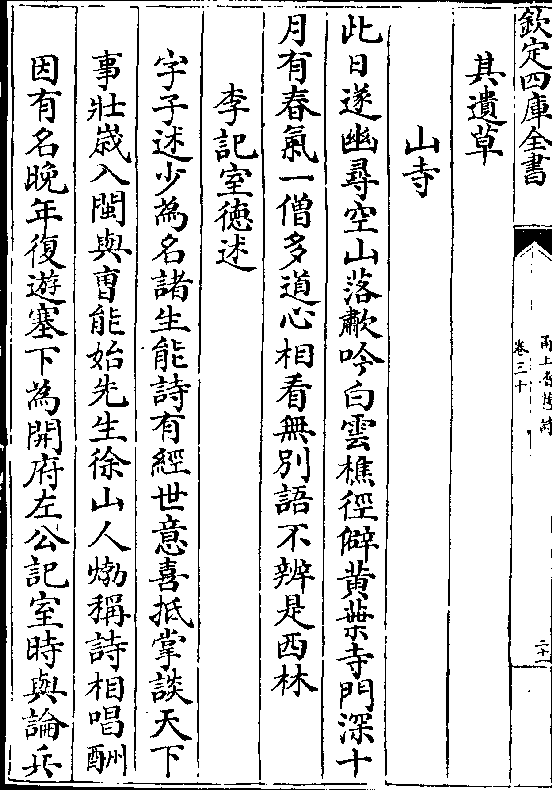 欽定四庫全書
甬上耆舊詩
卷三十
其遺草
山寺
此日遂幽尋空山落歗吟白雲樵徑僻黄葉寺門深十
月有春氣一僧多道心相看無別語不辨是西林
李記室徳述
字子述少為名諸生能詩有經世意喜抵掌談天下
事壯歳入閩與曹能始先生徐山人㶿稱詩相唱酬
因有名晚年復遊塞下為開府左公記室時與論兵